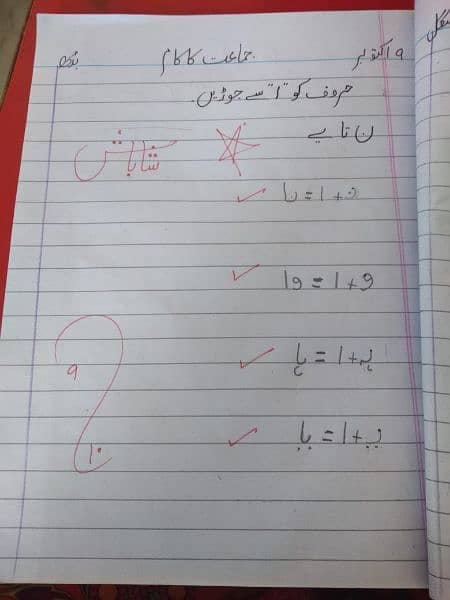 ۹ اکتوبر جماعت کا کام بدھ
حروف کو "ا" سے جوڑیں۔
ن تا یے
شاباش
نـ + ا = نا
و + ا = وا
ہـ + ا = ہا
یـ + ا = یا
۹
۱۰